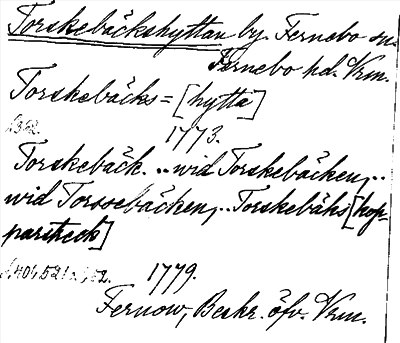 Torskebäckshyttan by. Fernebo sn.
Fernebo hd. Vrm.
Torskebäcks=[hytta]
1773.
Torskebäck. .. wid Torskebäcken, ..
wid Torssebäcken, .. Torskebäks[kop-
parstreck]
1779.
Fernow, Beskr. öfv. Vrm.